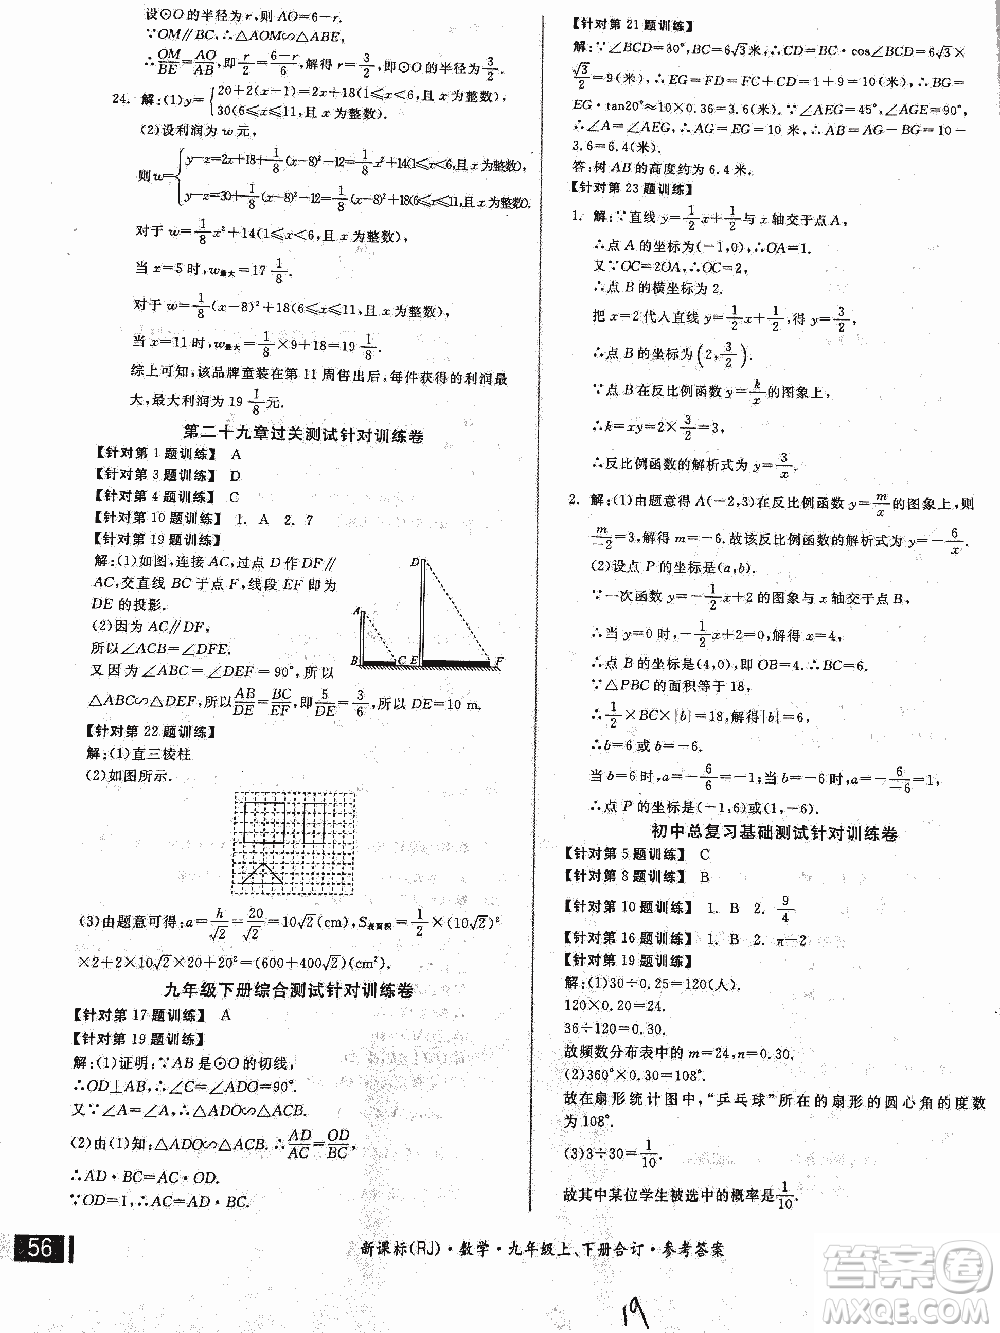 设⊙O的半径为r,则AO=6-r.
∵OM∥BC,∴△AOM∽△ABE,
∴OM/BE=AO/AB,即r/2=(6-r)/6,解得r=3/2,即⊙O的半径为3/2
24. 解:(1)y={20+2(x-1)=2x+18(1≤x<6,且x为整数),
30(6≤x≤11,且x为整数).
(2)设利润为w元,
则w={y-z=2x+18+1/8(x-8)²-12=1/8x²+14(1≤x<6,且x为整数)
y-z=30+1/8(x-8)²-12=1/8(x-8)²+18(6≤x≤11,且x为整数).
对于w=1/8x²+14(1≤x<6,且x为整数),
当x=5时,w最大=17 1/8.
对于w=1/8(x-8)²+18(6≤x≤11,且x为整数),
当x=11时,w最大=1/8×9+18=19 1/8.
综上可知,该品牌童装在第11周售出后,每件获得的利润最
大,最大利润为19 1/8元.
第二十九章过关测试针对训练卷
【针对第1题训练】 A
【针对第3题训练】 D
【针对第4题训练】 C
【针对第10题训练】 1. A 2. 7
【针对第19题训练】
解:(1)如图,连接AC,过点D作DF∥
AC,交直线BC于点F,线段EF即为
DE的投影.
(2)因为AC∥DF,
所以∠ACB=∠DFE.
又因为∠ABC=∠DEF=90°,所以
△ABC∽△DEF,所以AB/DE=BC/EF,即5/DE=3/6,所以DE=10 m.
D
A
B
C E
F
【针对第22题训练】
解:(1)直三棱柱
(2)如图所示.
(3)由题意可得:a=h/√2=20/√2=10√2(cm),S表面积=1/2×(10√2)²
×2+2×10√2×20+20²=(600+400√2)(cm²).
九年级下册综合测试针对训练卷
【针对第17题训练】 A
【针对第19题训练】
解:(1)证明:∵AB是⊙O的切线,
∴OD⊥AB,∴∠C=∠ADO=90°.
又∵∠A=∠A,∴△ADO∽△ACB.
(2)由(1)知:△ADO∽△ACB.∴AD/AC=OD/BC,
∴AD·BC=AC·OD.
∵OD=1,∴AC=AD·BC.
【针对第21题训练】
解:∵∠BCD=30°,BC=6√3米,∴CD=BC·cos∠BCD=6√3×
√3/2=9(米),∴EG=FD=FC+CD=1+9=10(米),∴BG=EG
·tan20°≈10×0.36=3.6(米).∵∠AEG=45°,∠AGE=90°,
∴∠A=∠AEG,∴AG=EG=10米,∴AB=AG-BG=10-
3.6=6.4(米).
答:树AB的高度约为6.4米.
【针对第23题训练】
1. 解:∵直线y=1/2x+1/2与x轴交于点A,
∴点A的坐标为(-1,0),∴OA=1.
又∵OC=2OA,∴OC=2,
∴点B的横坐标为2.
把x=2代入直线y=1/2x+1/2,得y=3/2,
∴点B的坐标为(2,3/2).
∵点B在反比例函数y=k/x的图象上,
∴k=xy=2×3/2=3,
∴反比例函数的解析式为y=3/x.
2. 解:(1)由题意得A(-2,3)在反比例函数y=m/x的图象上,则
m/-2=3,解得m=-6.故该反比例函数的解析式为y=-6/x.
(2)设点P的坐标为(a,b).
∵一次函数y=-1/2x+2与x轴交于点B,
∴当y=0时,-1/2x+2=0,解得x=4,
∴点B的坐标是(4,0),即OB=4.∴BC=6.
∵△PBC的面积等于18,
∴1/2×BC×|b|=18,解得|b|=6,
∴b=6或b=-6,
当b=6时,a=-1;当b=-6时,a=-6/-6=1,
∴点P的坐标为(-1,6)或(1,-6).
初中总复习基础测试针对训练卷
【针对第5题训练】 C
【针对第8题训练】 B
【针对第10题训练】 1. B 2. 9/4
【针对第16题训练】 1. B 2. π-2
【针对第19题训练】
解:(1)30÷0.25=120(人).
120×0.20=24(人).
36÷120=0.30.
故频数分布表中的m=24,n=0.30.
(2)360°×0.30=108°.
故在扇形统计图中,“乒乓球”所在的扇形的圆心角的度数
为108°.
(3)3÷30=1/10.
故其中某位学生被选中的概率是1/10.
56
新课标(RJ)·数学·九年级上、下册合订·参考答案
19
答案卷
MXQE.COM